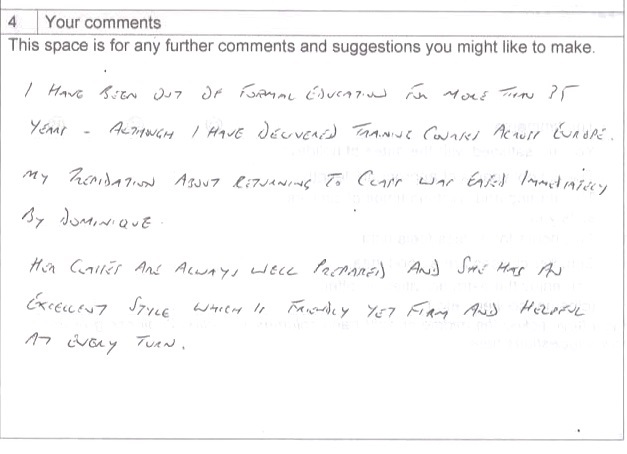 4 Your comments
This space is for any further comments and suggestions you might like to make.
I HAVE BEEN OUT OF FORMAL EDUCATION FOR MORE THAN 35
YEARS - ALTHOUGH I HAVE DELIVERED TRAINING COURSES ACROSS EUROPE.
MY TREPIDATION ABOUT RETURNING TO CLASS WAS EASED IMMEDIATELY
BY DOMINIQUE.
HER CLASSES ARE ALWAYS WELL PREPARED AND SHE HAS AN
EXCELLENT STYLE WHICH IS FRIENDLY YET FIRM AND HELPFUL
AT EVERY TURN.